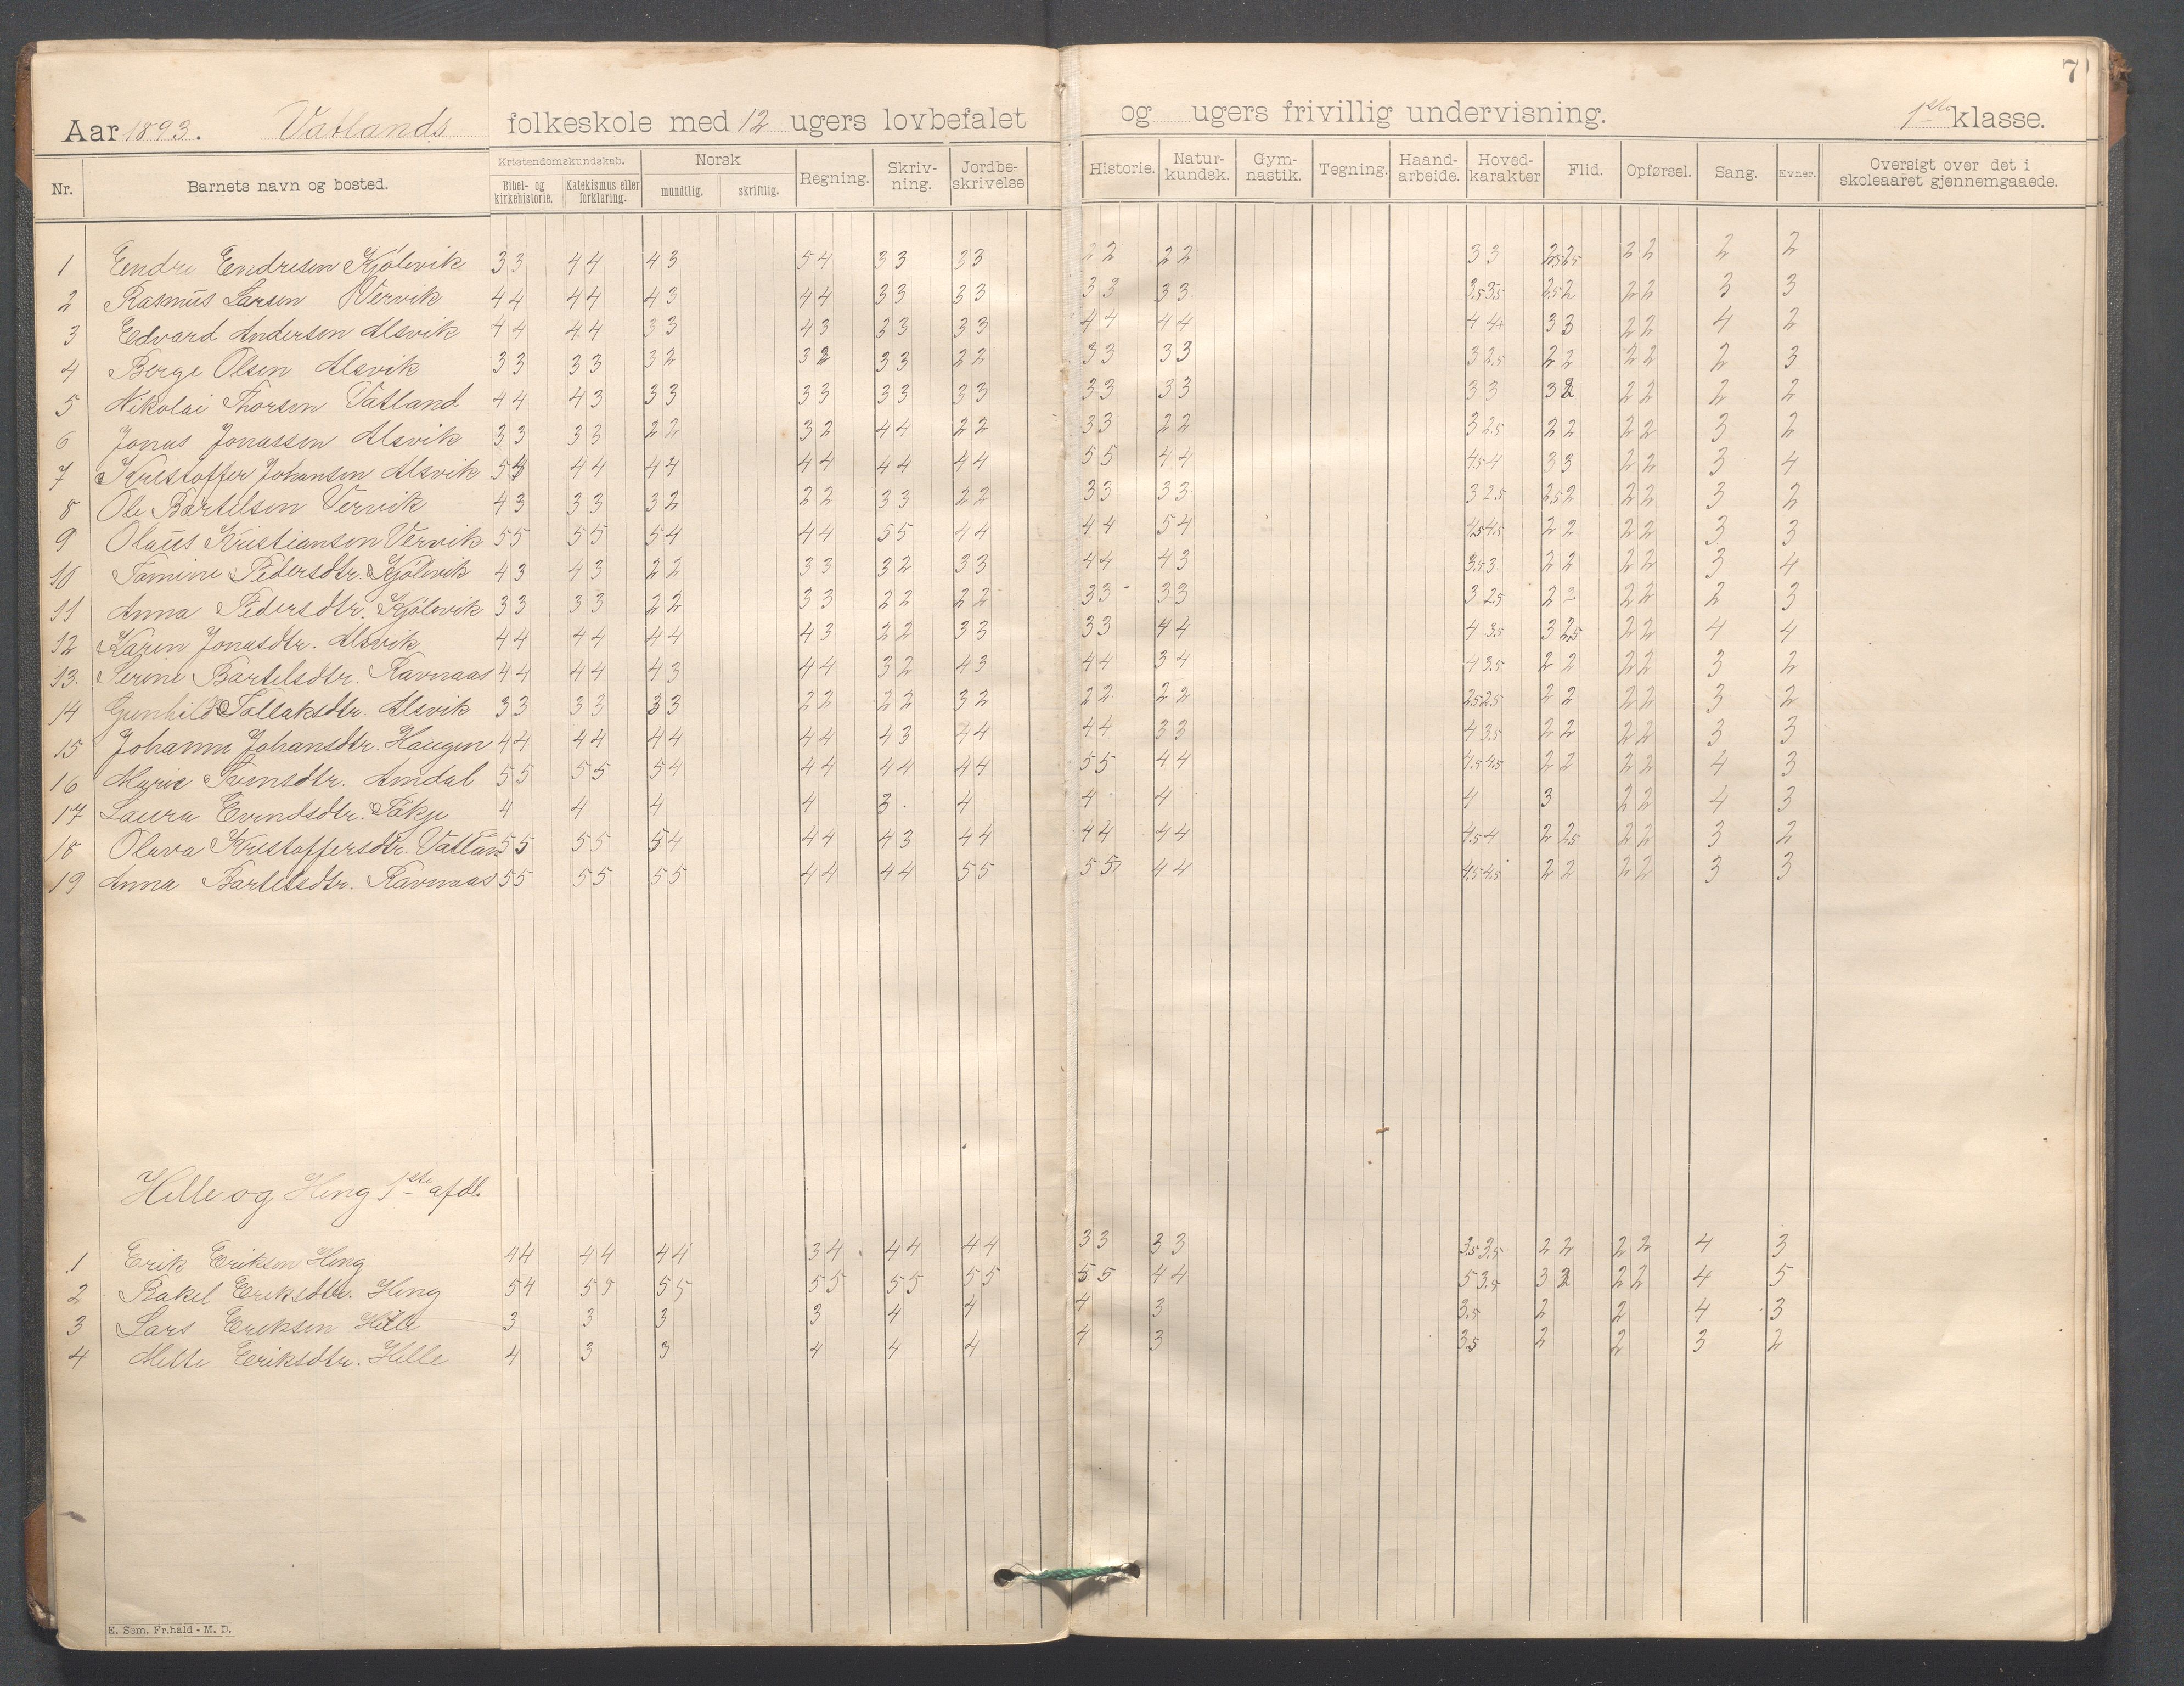 7
Aar 1893. Vatlands folkeskole med 12 ugers lovbefalet og ugers frivillig undervisning. 1ste klasse.
Nr. Barnets navn og bosted. Kristendomskundskab. Bibel- og kirkehistorie. Katekismus eller forklaring. Norsk mundtlig. skriftlig. Regning. Skriv-ning. Jordbe-skrivelse Historie. Natur-kundsk. Gym-nastik. Tegning. Haand-arbeide. Hoved-karakter Flid. Opførsel. Sang. Evner. Oversigt over det i skoleaaret gjennemgaaede.
1 Endre Endresen Kjölevik 33 44 43 54 33 33 22 22 33 2525 22 2 2
2 Rasmus Larsen Vervik 44 44 43 44 33 33 33 33 3.53.5 2.52 22 3 3
3 Edvard Andersen Alsvik 44 44 33 43 33 33 44 44 44 33 22 4 2
4 Berge Olsen Alsvik 33 33 32 32 33 22 33 33 32.5 22 22 2 3
5 Nikolai Thorsen Vatland 44 43 33 33 33 33 33 33 33 32 22 2 2
6 Jonas Jonassen Alsvik 33 33 22 32 44 22 33 22 32.5 22 22 3 2
7 Kristoffer Johansen Alsvik 54 44 44 44 44 44 55 44 4.54 33 22 3 4
8 Ole Bartelsen Vervik 43 33 32 22 33 22 33 33 32.5 2.52 22 3 2
9 Olaus Kristiansen Vervik 55 55 54 44 55 44 44 54 4.54.5 22 22 3 3
10 Tomine Pedersdtr. Kjölevik 43 43 22 33 32 33 44 43 3.53. 22 22 3 4
11 Anna Pedersdtr. Kjölevik 33 33 22 33 22 22 33 33 32.5 22 22 2 3
12 Karen Jonasdtr. Alsvik 44 44 44 43 22 33 33 44 43.5 32.5 22 4 4
13. Serine Bartelsdtr. Ravnaas 44 44 43 44 32 43 44 34 43.5 22 22 3 2
14 Gunhild Tollaksdtr. Alsvik 33 33 33 22 22 32 22 22 2.52.5 22 22 3 2
15 Johanne Johansdtr. Haugen 44 44 44 44 43 44 44 33 43.5 22 22 3 3
16 Marie Svensdtr. Amdal 55 55 54 44 44 44 55 44 4.54.5 22 22 4 3
17 Laura Evindsdtr. Tökje 4 4 4 4 3. 4 4 4 4 3 22 4 3
18 Oleva Kristoffersdtr. Vatlan 55 55 54 44 43 44 44 44 4.54 22.5 22 3 2
19 Anna Bartelsdtr. Ravnaas 55 55 55 44 44 55 55 44 4.54.5 22 22 3 3
Hille og Heng 1ste afdl.
1 Erik Eriksen Heng 44 44 44 34 44 44 33 33 3.53.5 22 22 4 3
2 Rakel Eriksdtr. Heng 54 55 55 55 55 55 55 44 53.5 32 22 4 5
3 Lars Eriksen Hille 3 3 3 3 4 4 4 3 3.5 2 2 4 3
4 Mette Eriksdtr. Hille 4 3 3 4 4 4 4 3 3.5 2 2 3 2
E. Sem. Fr.hald - M. D.